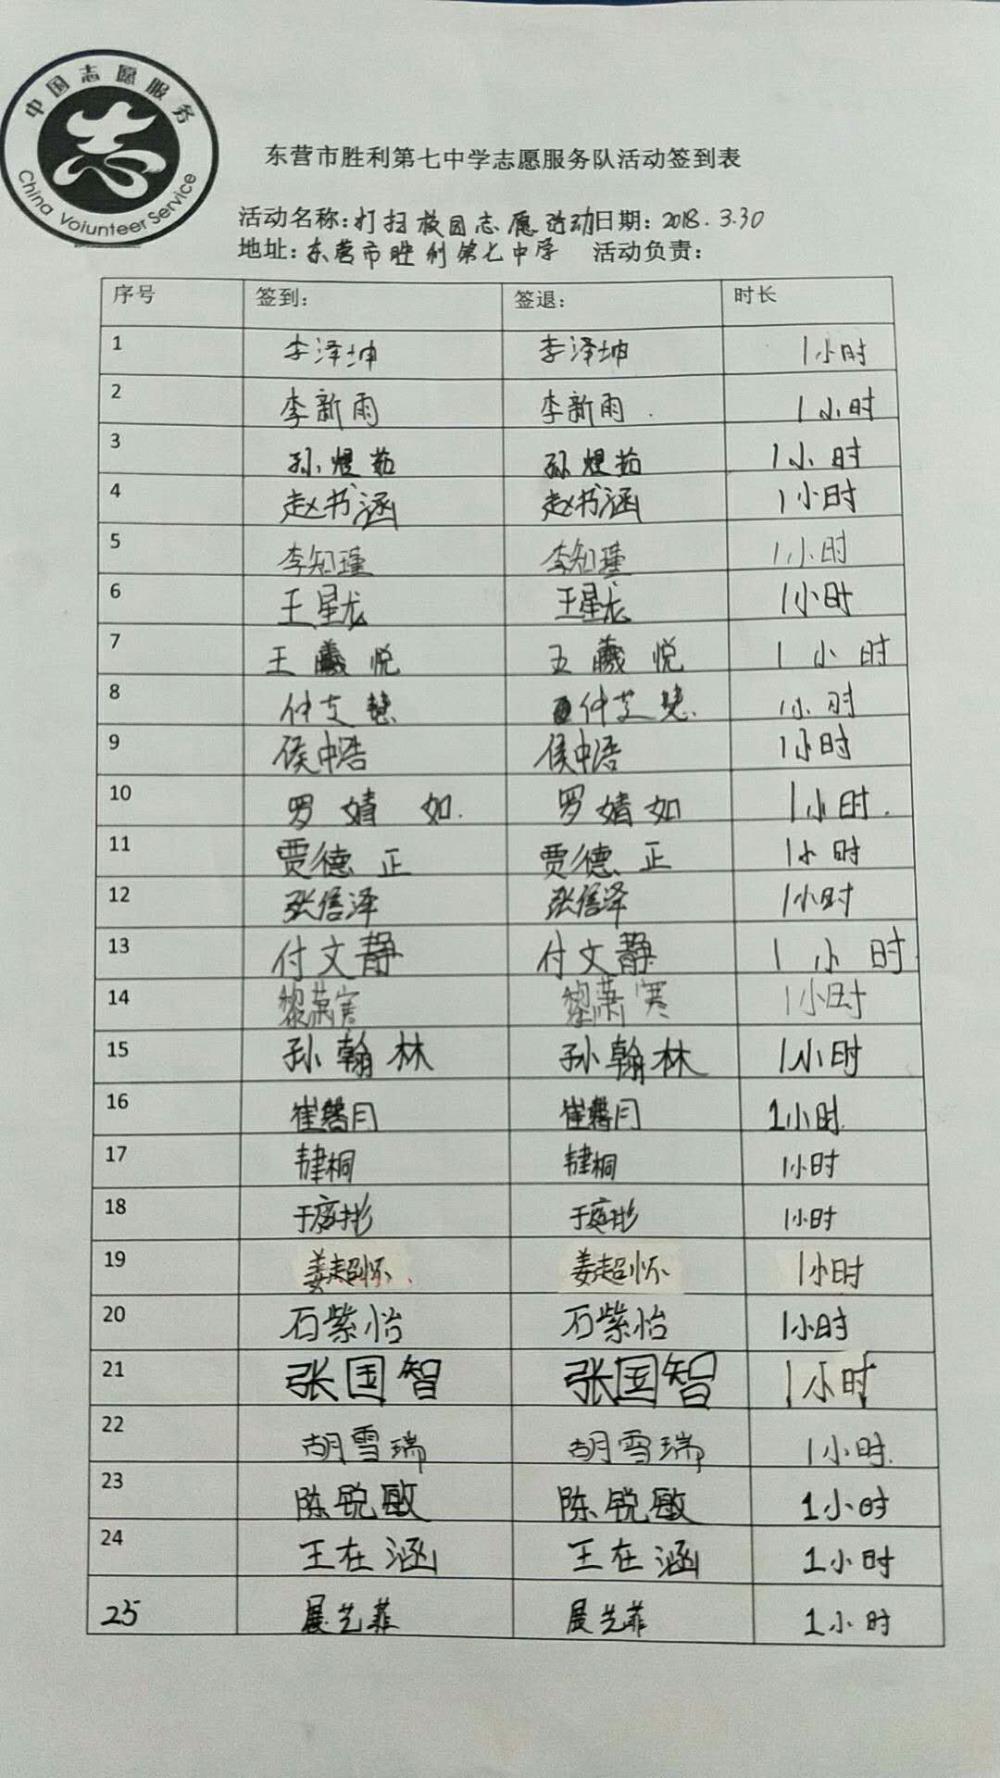 中国志愿服务
China Volunteer Service
东营市胜利第七中学志愿服务队活动签到表
活动名称:打扫校园志愿活动日期: 2018.3.30
地址:东营市胜利第七中学 活动负责:
序号 签到: 签退: 时长
1 李泽坤 李泽坤 1小时
2 李新雨 李新雨 1小时
3 孙煜茹 孙煜茹 1小时
4 赵书涵 赵书涵 1小时
5 李知瑾 李知瑾 1小时
6 王星龙 王星龙 1小时
7 王羲悦 王羲悦 1小时
8 仲艾慧 仲艾慧 1小时
9 侯中浩 侯中浩 1小时
10 罗婧如 罗婧如 1小时
11 贾德正 贾德正 1小时
12 张信泽 张信泽 1小时
13 付文静 付文静 1小时
14 黎萧寒 黎萧寒 1小时
15 孙翰林 孙翰林 1小时
16 崔馨月 崔馨月 1小时
17 桐 桐 1小时
18 于庭彬 于庭彬 1小时
19 姜超怀 姜超怀 1小时
20 石紫怡 石紫怡 1小时
21 张国智 张国智 1小时
22 胡雪瑞 胡雪瑞 1小时
23 陈锐敏 陈锐敏 1小时
24 王在涵 王在涵 1小时
25 展艺菲 展艺菲 1小时